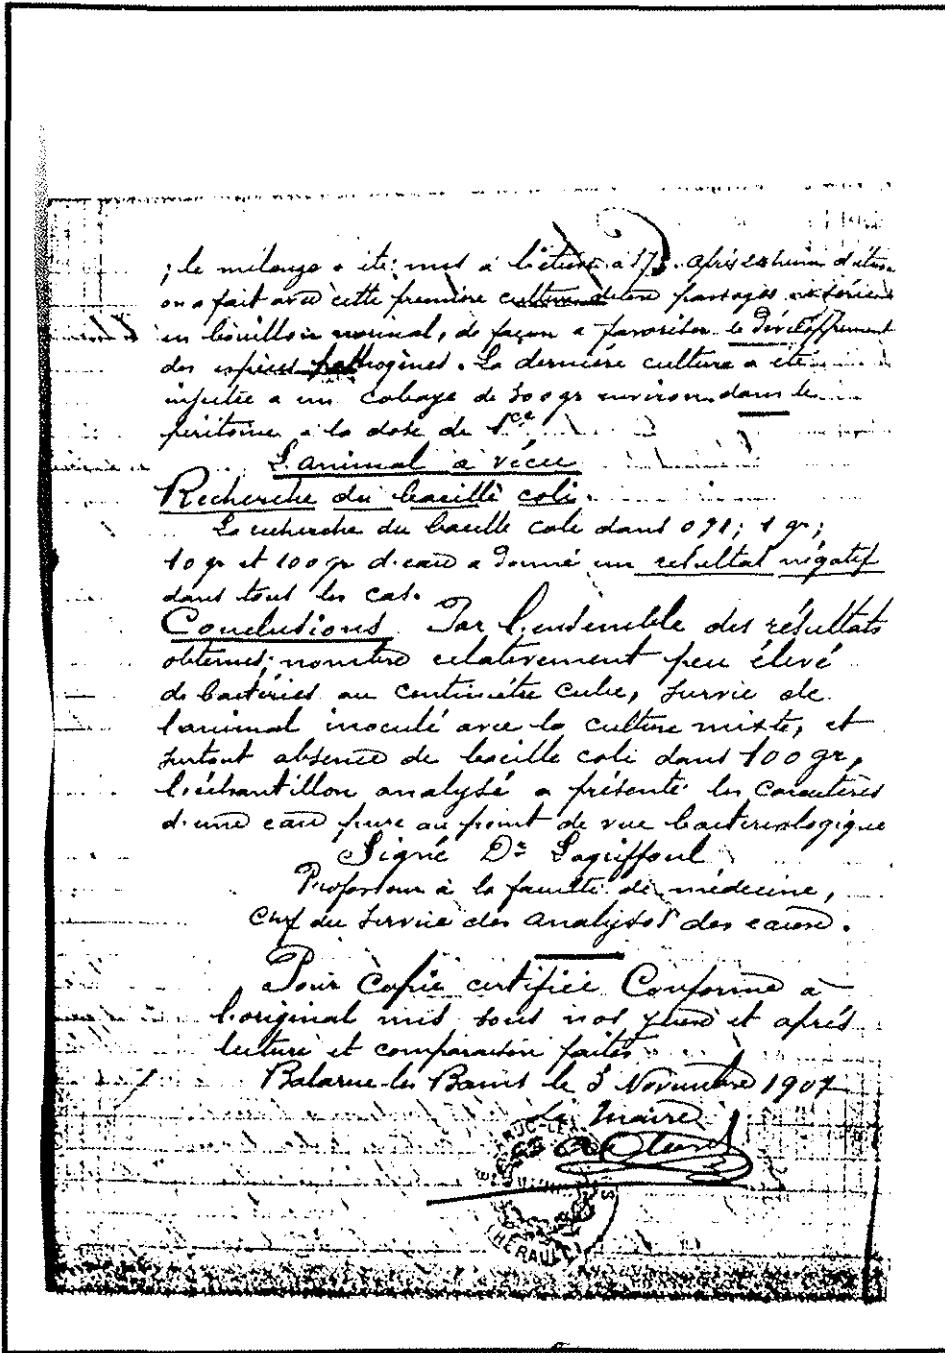 ; le mélange a été mis à l'étuve à 37°. Après 24 heures d'étuve
on a fait avec cette première culture deux passages en série
en bouillon normal, de façon a favoriser le développement
des espèces pathogènes. La dernière culture a été
injectée a un cobaye de 300 gr environ dans le
péritoine a la dose de 1cc
L'animal a vécu
Recherche du bacille coli.
La recherche du bacille coli dans 0g1; 1 gr;
10 gr et 100 gr d'eau a donné un resultat négatif
dans tous les cas.
Conclusions Par l'ensemble des résultats
obtenus: nombre relativement peu élevé
de bactéries au centimètre cube, survie de
l'animal inoculé avec la culture mixte, et
surtout absence de bacille coli dans 100 gr,
l'échantillon analysé a présenté les caractères
d'une eau pure au point de vue bacteriologique
Signé Dr Lagriffoul
Professeur à la faculté de médecine,
Chef du Service des Analyses des eaux.
Pour Copie certifiée Conforme a
l'original mis sous nos yeux et après
lecture et comparaison faites
Balaruc-les-Bains le 3 Novembre 1907
Le Maire
BARUC-LES
(HERAULT)